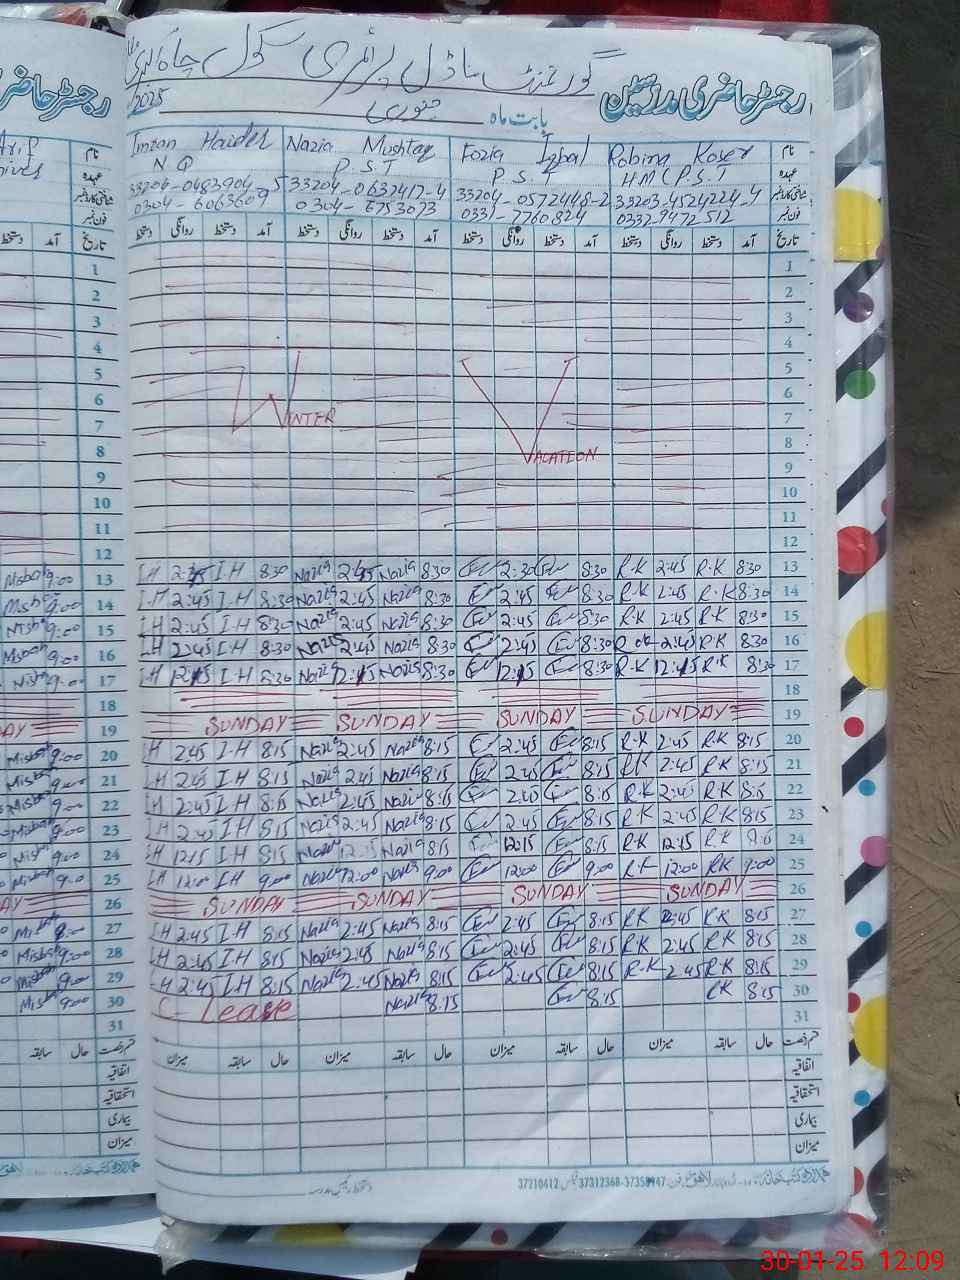 رجسٹر حاضری مدرسین گورنمنٹ ماڈل پرائمری سکول چاہ
بابت ماہ جنوری 2025
نام Robina Koser Fozia Iqbal Nazia Mushtaq Imran Haider
عہدہ HM (P.S.T P.S.T P.S.T N Q
شناختی کارڈ نمبر 33203-4524224-4 33204-0572448-2 33204-0632417-4 33204-0483904-5
فون نمبر 0332-9472512 0331-7760824 0304-6753073 0304-6063609
تاریخ آمد دستخط روانگی دستخط آمد دستخط روانگی دستخط آمد دستخط روانگی دستخط آمد دستخط روانگی دستخط
1
2
3
4
5
6
7 WINTER
8 VACATION
9
10
11
12
13 I.H 2:45 I.H 8:30 Nazia 2:45 Nazia 8:30 2:30 8:30 R.K 2:45 R.K 8:30
14 I.H 2:45 I.H 8:30 Nazia 2:45 Nazia 8:30 2:45 8:30 R.K 2:45 R.K 8:30
15 I.H 2:45 I.H 8:30 Nazia 2:45 Nazia 8:30 2:45 8:30 R.K 2:45 R.K 8:30
16 I.H 2:45 I.H 8:30 Nazia 2:45 Nazia 8:30 2:45 8:30 2:45 R.K 8:30
17 I.H 12:15 I.H 8:30 Nazia 12:15 Nazia 8:30 12:15 8:30 R.K 12:15 R.K 8:30
18
19 SUNDAY SUNDAY SUNDAY SUNDAY
20 I.H 2:45 I.H 8:15 Nazia 2:45 Nazia 8:15 2:45 8:15 R.K 2:45 R.K 8:15
21 I.H 2:45 I.H 8:15 Nazia 2:45 Nazia 8:15 2:45 8:15 R.K 2:45 R.K 8:15
22 I.H 2:45 I.H 8:15 Nazia 2:45 Nazia 8:15 2:45 8:15 R.K 2:45 R.K 8:15
23 I.H 2:45 I.H 8:15 Nazia 2:45 Nazia 8:15 2:45 8:15 R.K 2:45 R.K 8:15
24 I.H 12:15 I.H 8:15 Nazia 12:15 Nazia 8:15 12:15 8:15 R.K 12:15 R.K
25 I.H 12:00 I.H 9:00 Nazia 12:00 Nazia 9:00 12:00 9:00 R.K 12:00 R.K 9:00
26 SUNDAY SUNDAY SUNDAY SUNDAY
27 I.H 2:45 I.H 8:15 Nazia 2:45 Nazia 8:15 2:45 8:15 R.K 2:45 R.K 8:15
28 I.H 2:45 I.H 8:15 Nazia 2:45 Nazia 8:15 2:45 8:15 R.K 2:45 R.K 8:15
29 I.H 2:45 I.H 8:15 Nazia 2:45 Nazia 8:15 2:45 8:15 R.K 2:45 R.K 8:15
30 C-Leave Nazia 8:15 8:15 R.K 8:15
31
قسم رخصت حال سابقہ میزان حال سابقہ میزان حال سابقہ میزان حال سابقہ میزان
اتفاقیہ
استحقاقیہ
بیماری
میزان
37210412 37312368-37358947
رجسٹر حاضر
نام
عہدہ
شناختی کارڈ نمبر
فون نمبر
تاریخ
1
2
3
4
5
6
7
8
9
10
11
12
13 Misbah 9:00
14 Misbah 9:00
15 Misbah 9:00
16 Misbah 9:00
17 Misbah 9:00
18
19 DAY
20 Misbah 9:00
21 Misbah 9:00
22 Misbah 9:00
23 Misbah 9:00
24 Misbah 9:00
25 Misbah 9:00
26 DAY
27
28 Misbah 9:00
29 Misbah 9:00
30 Misbah 9:00
31
قسم رخصت حال سابقہ
اتفاقیہ
استحقاقیہ
بیماری
میزان
30-01-25 12:09